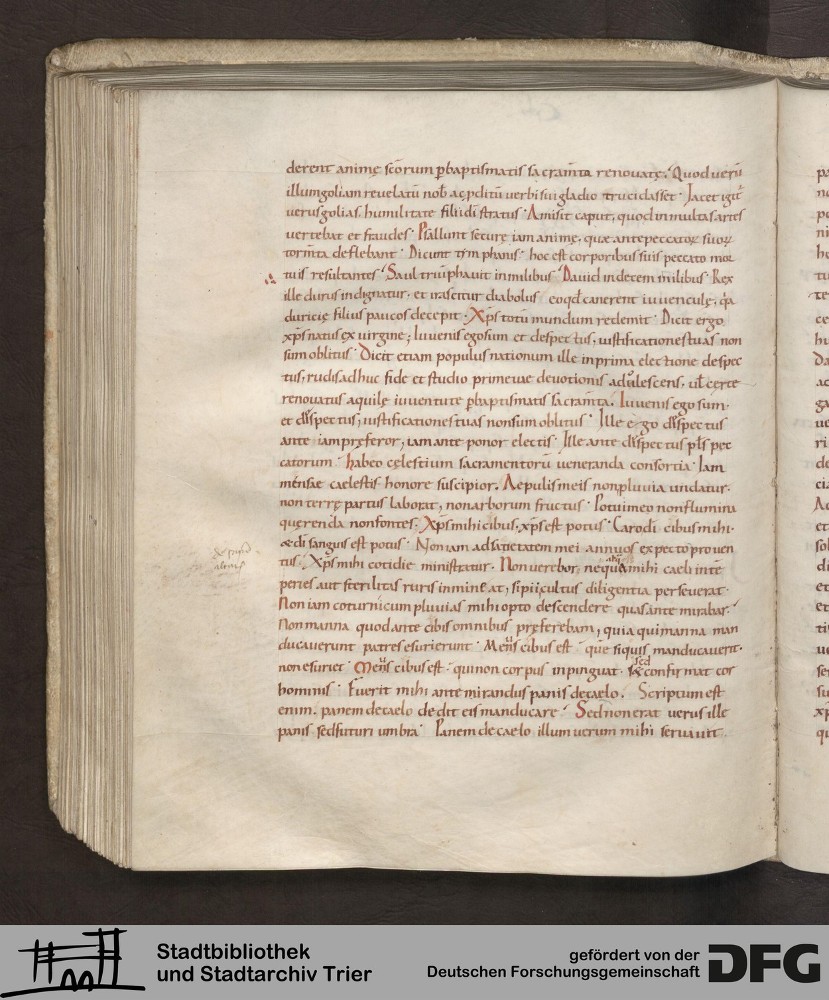 derent animę scõrum p baptismatis sacram̃ta renovatę. Quod verũ
illum goliam revelatũ nob̃ ac p̱ditũ verbi sui gladio trucidasset. Jacet igit̃
verus golias. humilitate filii di stratus. Amisit caput, quod in multas artes
vertebat et fraudes. Psallunt secure iam animę, quae ante peccatoꝝ suoꝝ
torm̃ta deflebant. Dicunt tỹmphanis. hoc est corporibus suis peccato mor
tuis resultantes. Saul triũphavit in milibus. David in decem milibus. Rex
ille durus indignatur. et irascitur diabolus eo qd̃ canerent iuvenculę. q̃a
duricię filius paucos decepit. Xp̃s totũ mundum redemit. Dicit ergo
xp̃s natus ex virgine; Iuvenis ego sum et despectus; iustificationes tuas non
sum oblitus. Dicit etiam populus nationum ille in prima electione despec
tus; rudis adhuc fide et studio primevae devotionis adulescens. vel certe
renovatus aquilę iuventute p baptismatis sacram̃ta. Iuvenis ego sum.
et despectus; iustificationes tuas non sum oblitus. Ille ergo despectus
ante iam pręferor; iam ante ponor electis. Ille ante despectus pls̃ pec
catorum. habeo cęlestium sacramentorũ veneranda consortia. Iam
mensae caelestis honore suscipior. Aepulis meis non pluvia undatur.
non terrę partus laborat, non arborum fructus. Potui meo non flumina
quęrenda non fontes. Xp̃s mihi cibus. xp̃s est potus. Caro di cibus mihi.
& di sanguis est potus. Non iam ad satietatem mei annuos expecto proven
tus. Xp̃s mihi cotidie ministratur. Non verebor, nequa mihi caeli inte
peries aut sterilitas ruris immineat, si pii cultus diligentia perseverat.
Non iam coturnicum pluvias mihi opto descendere quas ante mirabar.
Non manna quod ante cibis omnibus pręferebam, quia qui manna man
ducaverunt patres esurierunt. Meus cibus est. que siquis manducaverit.
non esuriet. Meus cibus est. qui non corpus inpinguat. sed confirmat cor
hominis. Fuerit mihi ante mirandus panis de caelo. Scriptum est
enim. panem de caelo dedit eis manducare. Sed non erat verus ille
panis sed futuri umbra. Panem de caelo illum verum mihi servavit.
Stadtbibliothek
und Stadtarchiv Trier
gefördert von der
Deutschen Forschungsgemeinschaft
DFG